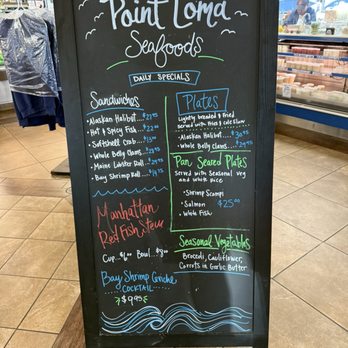 Point Loma
Seafoods
DAILY SPECIALS
Sandwiches
• Alaskan Halibut
• Hot & Spicy Fish
• Softshell Crab
• Whole Belly Clams
• Maine Lobster Roll
• Bay Shrimp Roll
Plates
Lightly breaded & fried
served with fries & cole slaw
• Alaskan Halibut
• Whole Belly Clams
Pan Seared Plates
Served with Seasonal veg
and white rice
• Shrimp Scampi
• Salmon $25.00
• White Fish
Manhattan
Red Fish Stew
Cup Bowl
Seasonal Vegetables
Brocoli, Cauliflower,
Carrots in Garlic Butter
Bay Shrimp Ceviche
COCKTAIL
$9.95